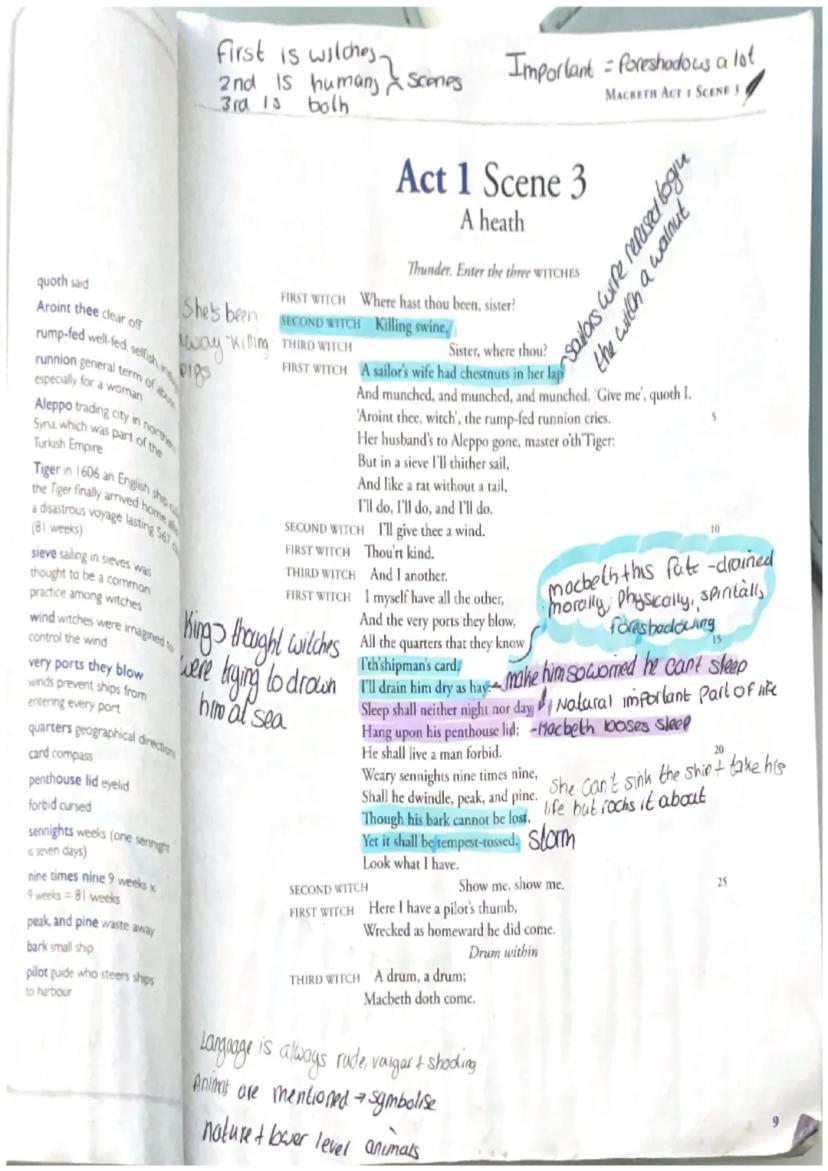 First is witches
2nd is humans } scenes
3rd is both
Important = foreshadows a lot
MACBETH ACT 1 SCENE 3
Act 1 Scene 3
A heath
Thunder. Enter the three WITCHES
sailors wife refused
the witch a walnut
She's been
away "killing
pigs
FIRST WITCH Where hast thou been, sister?
SECOND WITCH Killing swine.
THIRD WITCH Sister, where thou?
FIRST WITCH A sailor's wife had chestnuts in her lap
And munched, and munched, and munched. 'Give me', quoth I.
'Aroint thee, witch', the rump-fed runnion cries. 5
Her husband's to Aleppo gone, master o'th'Tiger:
But in a sieve I'll thither sail,
And like a rat without a tail,
I'll do, I'll do, and I'll do.
SECOND WITCH I'll give thee a wind. 10
FIRST WITCH Thou'rt kind.
THIRD WITCH And I another.
FIRST WITCH I myself have all the other,
And the very ports they blow,
All the quarters that they know 15
I'th'shipman's card.
I'll drain him dry as hay:
Sleep shall neither night nor day
Hang upon his penthouse lid;
He shall live a man forbid. 20
Weary sennights nine times nine,
Shall he dwindle, peak, and pine.
Though his bark cannot be lost,
Yet it shall be tempest-tossed.
Look what I have.
SECOND WITCH Show me, show me. 25
FIRST WITCH Here I have a pilot's thumb,
Wrecked as homeward he did come.
Drum within
THIRD WITCH A drum, a drum;
Macbeth doth come.
macbeth this fate - drained
morally, physically, spiritally
foreshadowing
make him so worried he cant sleep
Natural important part of life
- Macbeth looses sleep
she can't sink the ship + take his
life but rocks it about
storm
King → thought witches
were trying to drown
him at sea
quoth said
Aroint thee clear off
rump-fed well-fed, selfish
runnion general term of
especially for a woman
Aleppo trading city in
Syria, which was part of the
Turkish Empire
Tiger in 1606 an English ship
the Tiger finally arrived home
a disastrous voyage lasting 567
(81 weeks)
sieve sailing in sieves was
thought to be a common
practice among witches
wind witches were imagined to
control the wind
very ports they blow
winds prevent ships from
entering every port
quarters geographical directions
card compass
penthouse lid eyelid
forbid cursed
sennights weeks (one sennight
is seven days)
nine times nine 9 weeks x
9 weeks = 81 weeks
peak, and pine waste away
bark small ship
pilot guide who steers ships
to harbour
Language is always rude, vulgar + shocking
Animals are mentioned → symbolise
nature + lower level animals
9